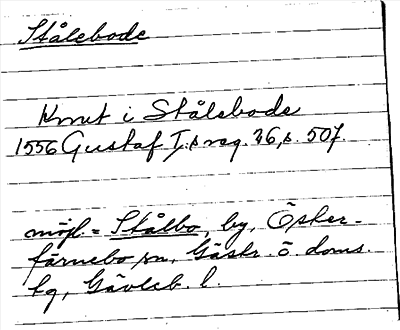 Stålebode
Knut i Stålebode
1556 Gustaf I:s reg. 26, s. 507.
möjl. = Stålbo, by, Öster-
färnebo sn, Gästr. ö. doms.
tg, Gävleb. l.